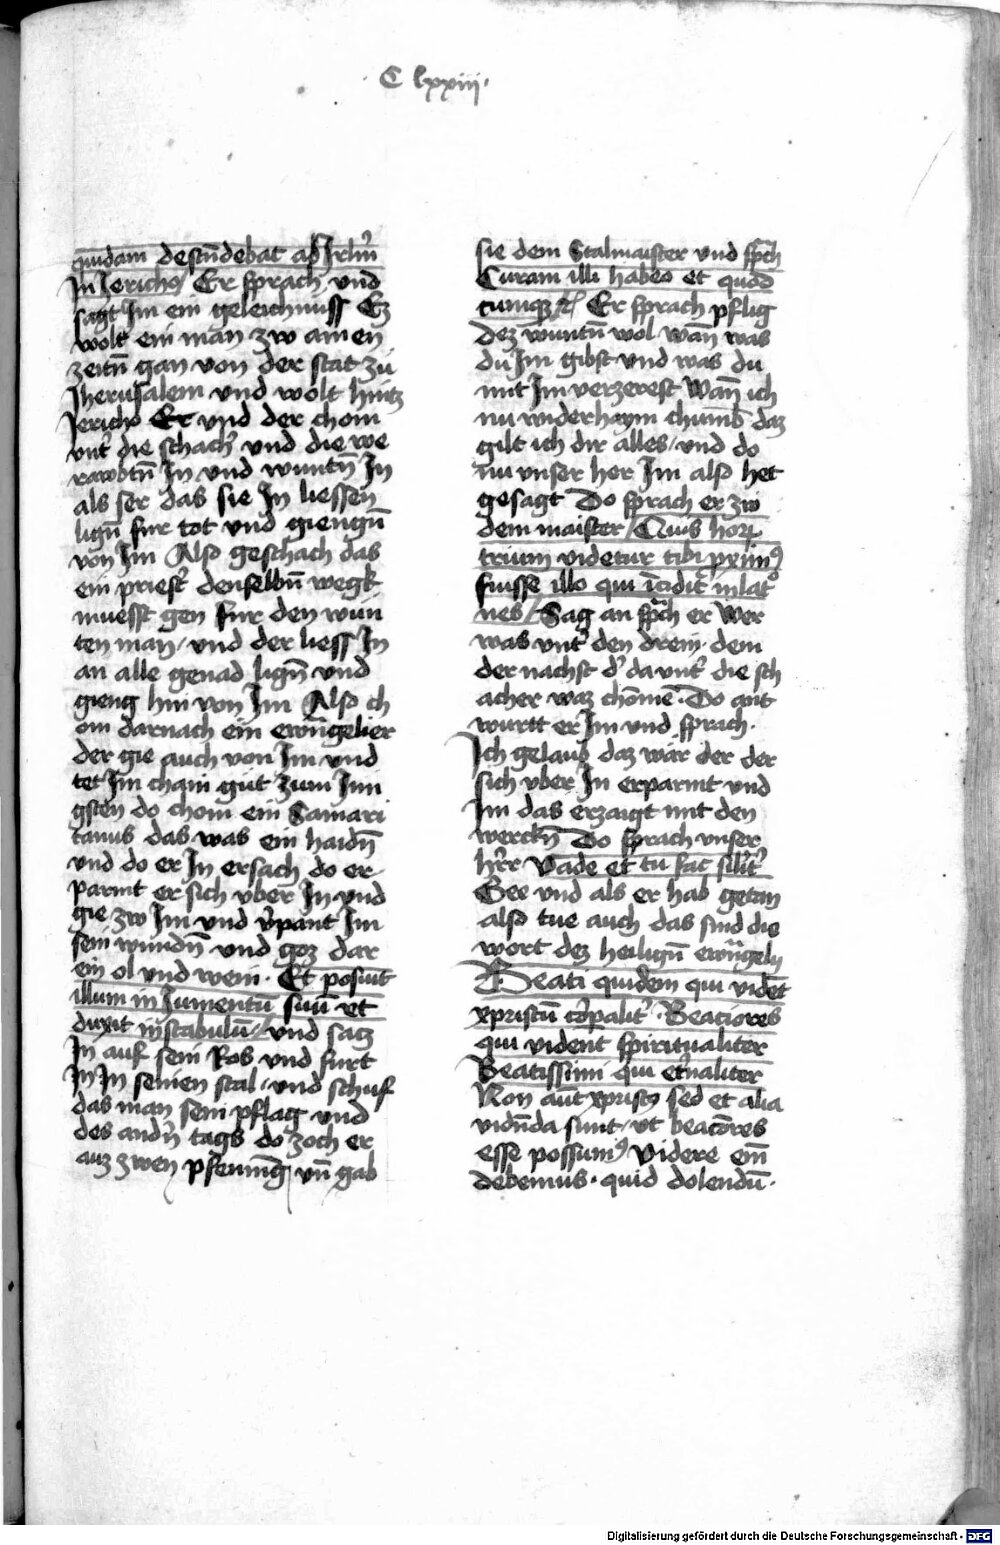 C lxxiii
quidam descendebat ab Jrlm̄
in Jericho Er sprach vnd
sagt Im ein geleichnuss Ez
wolt ein man zw amen
zeitn̄ gan von der stat zu
Jherusalem vnd wolt hintz
Jericho Er vnd der chom
vnt̄ die schach̄ vnd die we
rawbtn̄ In vnd wuntn̄ In
als ser das sie In liessen
lign̄ fur tot vnd giengn̄
von Im Also geschach das
ein priest̄ denselbn̄ wegk
muesst gen fur den wun
ten man / vnd der liess In
an alle genad lign̄ vnd
gieng hin von Im Also ch
om darnach ein ewn̄gelier
der gie auch von Im vnd
tet Im chain gut zum Inn
gsten do chom ein Samari
tanus das was ein haidn̄
vnd do er In ersach do er
parmt er sich vber In vnd
gie zw Im vnd v̄pant Im
sein wundn̄ vnd goz dar
ein ol vnd wein · Et posuit
illum in Jumentū suū et
duxit in stabulū / vnd satz
In auf sein Ros vnd furt
In In seinen stal / vnd schuf
das man sein pflag vnd
des andn̄ tags do zoch er
auz zwen pfenning vn̄ gab
sie dem Stalmaister vnd spch
Curam illi habeo et quod
cumqz Er sprach pflig
dez wuntn̄ wol wan̄ was
du Im gibst vnd was du
mit Im verzerest Wan̄ ich
nu widerhaym chumb daz
gilt ich dir alles / vnd do
nu vnser her Im also het
gesagt Do sprach er zw
dem maister / Cuius hor
trium videtur tibi pximꝰ
fuisse illo qui īcidit in lat
nes / Sag an spch er Wer
was vnt̄ den drein · dem
der nachst d̄ da vnt̄ die sch
acher waz chōme · Do ant
wurtt er Im vnd sprach ·
Ich gelaub daz wär der der
sich vber In erparmt vnd
Im das erzaigt mit den
werckn̄ Do sprach vnser
h̄rr Vade et tu fac silit̄
Gee vnd als er hab getan
also tue auch das sind die
wort dez heilign̄ ewn̄gely
Beati quidem qui vident
xpristū corpalit̄ · Beaciores
qui vident spiritualiter
Beatissimi qui et̄naliter
Non aut xpristꝰ sed et alia
vidn̄da sunt / vt beacōres
esse possumꝰ Videre em̄
debemus · quid dolendū ·
Digitalisierung gefördert durch die Deutsche Forschungsgemeinschaft - DFG